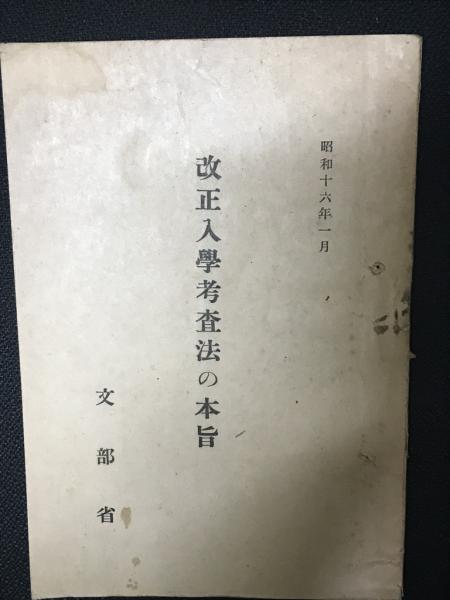 昭和十六年一月
改正入學考査法の本旨
文部省